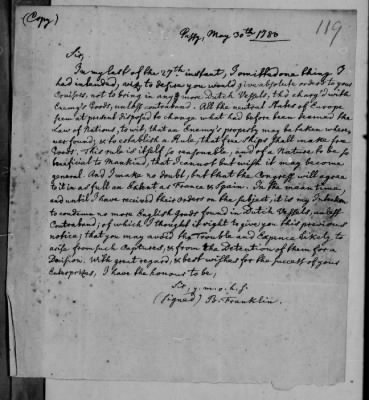 (Copy)
119
Passy, May 30th 1780
Sir,
In my last of the 27th instant, I omitted one thing I
had intended, viz, to desire you would give absolute orders to your
Cruisers, not to bring in any more Dutch Vessels, tho' charg'd with
Enemy's Goods, unless contraband. All the neutral States of Europe
seem at present disposed to change what had before been deemed the
Law of Nations, to wit, that an Enemy's property may be taken where-
ver found; & to establish a Rule, that free ships shall make free
Goods. This rule is itself so reasonable, and of a Nature to be so
beneficial to Mankind, that I cannot but wish it may become
general. And I make no doubt, but that the Congress will agree
to it in as full an Extent as France & Spain. In the mean time,
and until I have received their Orders on the subject, it is my Intention
to condemn no more English Goods found in Dutch Vessels, unless
Contraband; of which I thought it right to give you this previous
notice; that you may avoid the Trouble and Expence likely to
arise from such Captures, & from the Detention of them for a
Decision. With great regard, & best wishes for the success of your
Enterprises, I have the honour to be,
Sir, y. m. o. h. s.
(signed) B. Franklin.